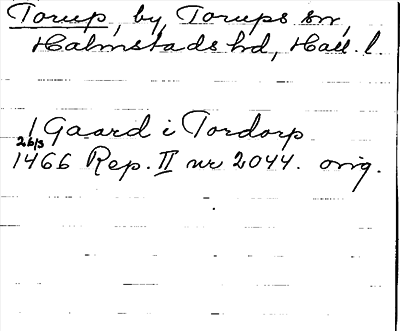 Torup, by, Torups sn,
Halmstads hd, Hall. l.
1 Gaard i Tordorp
26/3
1466 Rep. II nr 2044. orig.